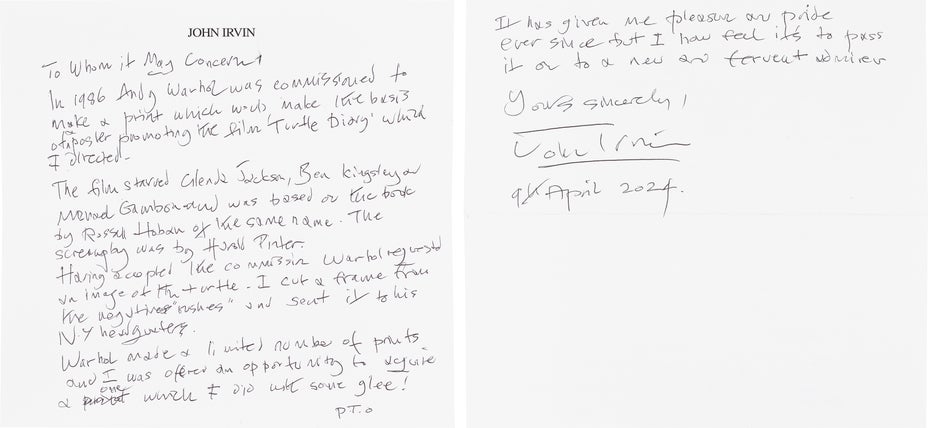 JOHN IRVIN
To Whom it May Concern
In 1986 Andy Warhol was commissioned to
make a print which would make the basis
of a poster promoting the film 'Turtle Diary' which
I directed.
The film starred Glenda Jackson, Ben Kingsley and
Michael Gambon and was based on the book
by Russell Hoban of the same name. The
screenplay was by Harold Pinter.
Having accepted the commission Warhol requested
an image of the turtle. I cut a frame from
the negatives "rushes" and sent it to his
N.Y headquarters.
Warhol made a limited number of prints
and I was offered an opportunity to acquire
a one which I did with some glee!
P.T.O
It has given me pleasure and pride
ever since but I now feel its to pass
it on to a new and fervent admirer
Yours sincerely,
John Irvin
9th April 2024.